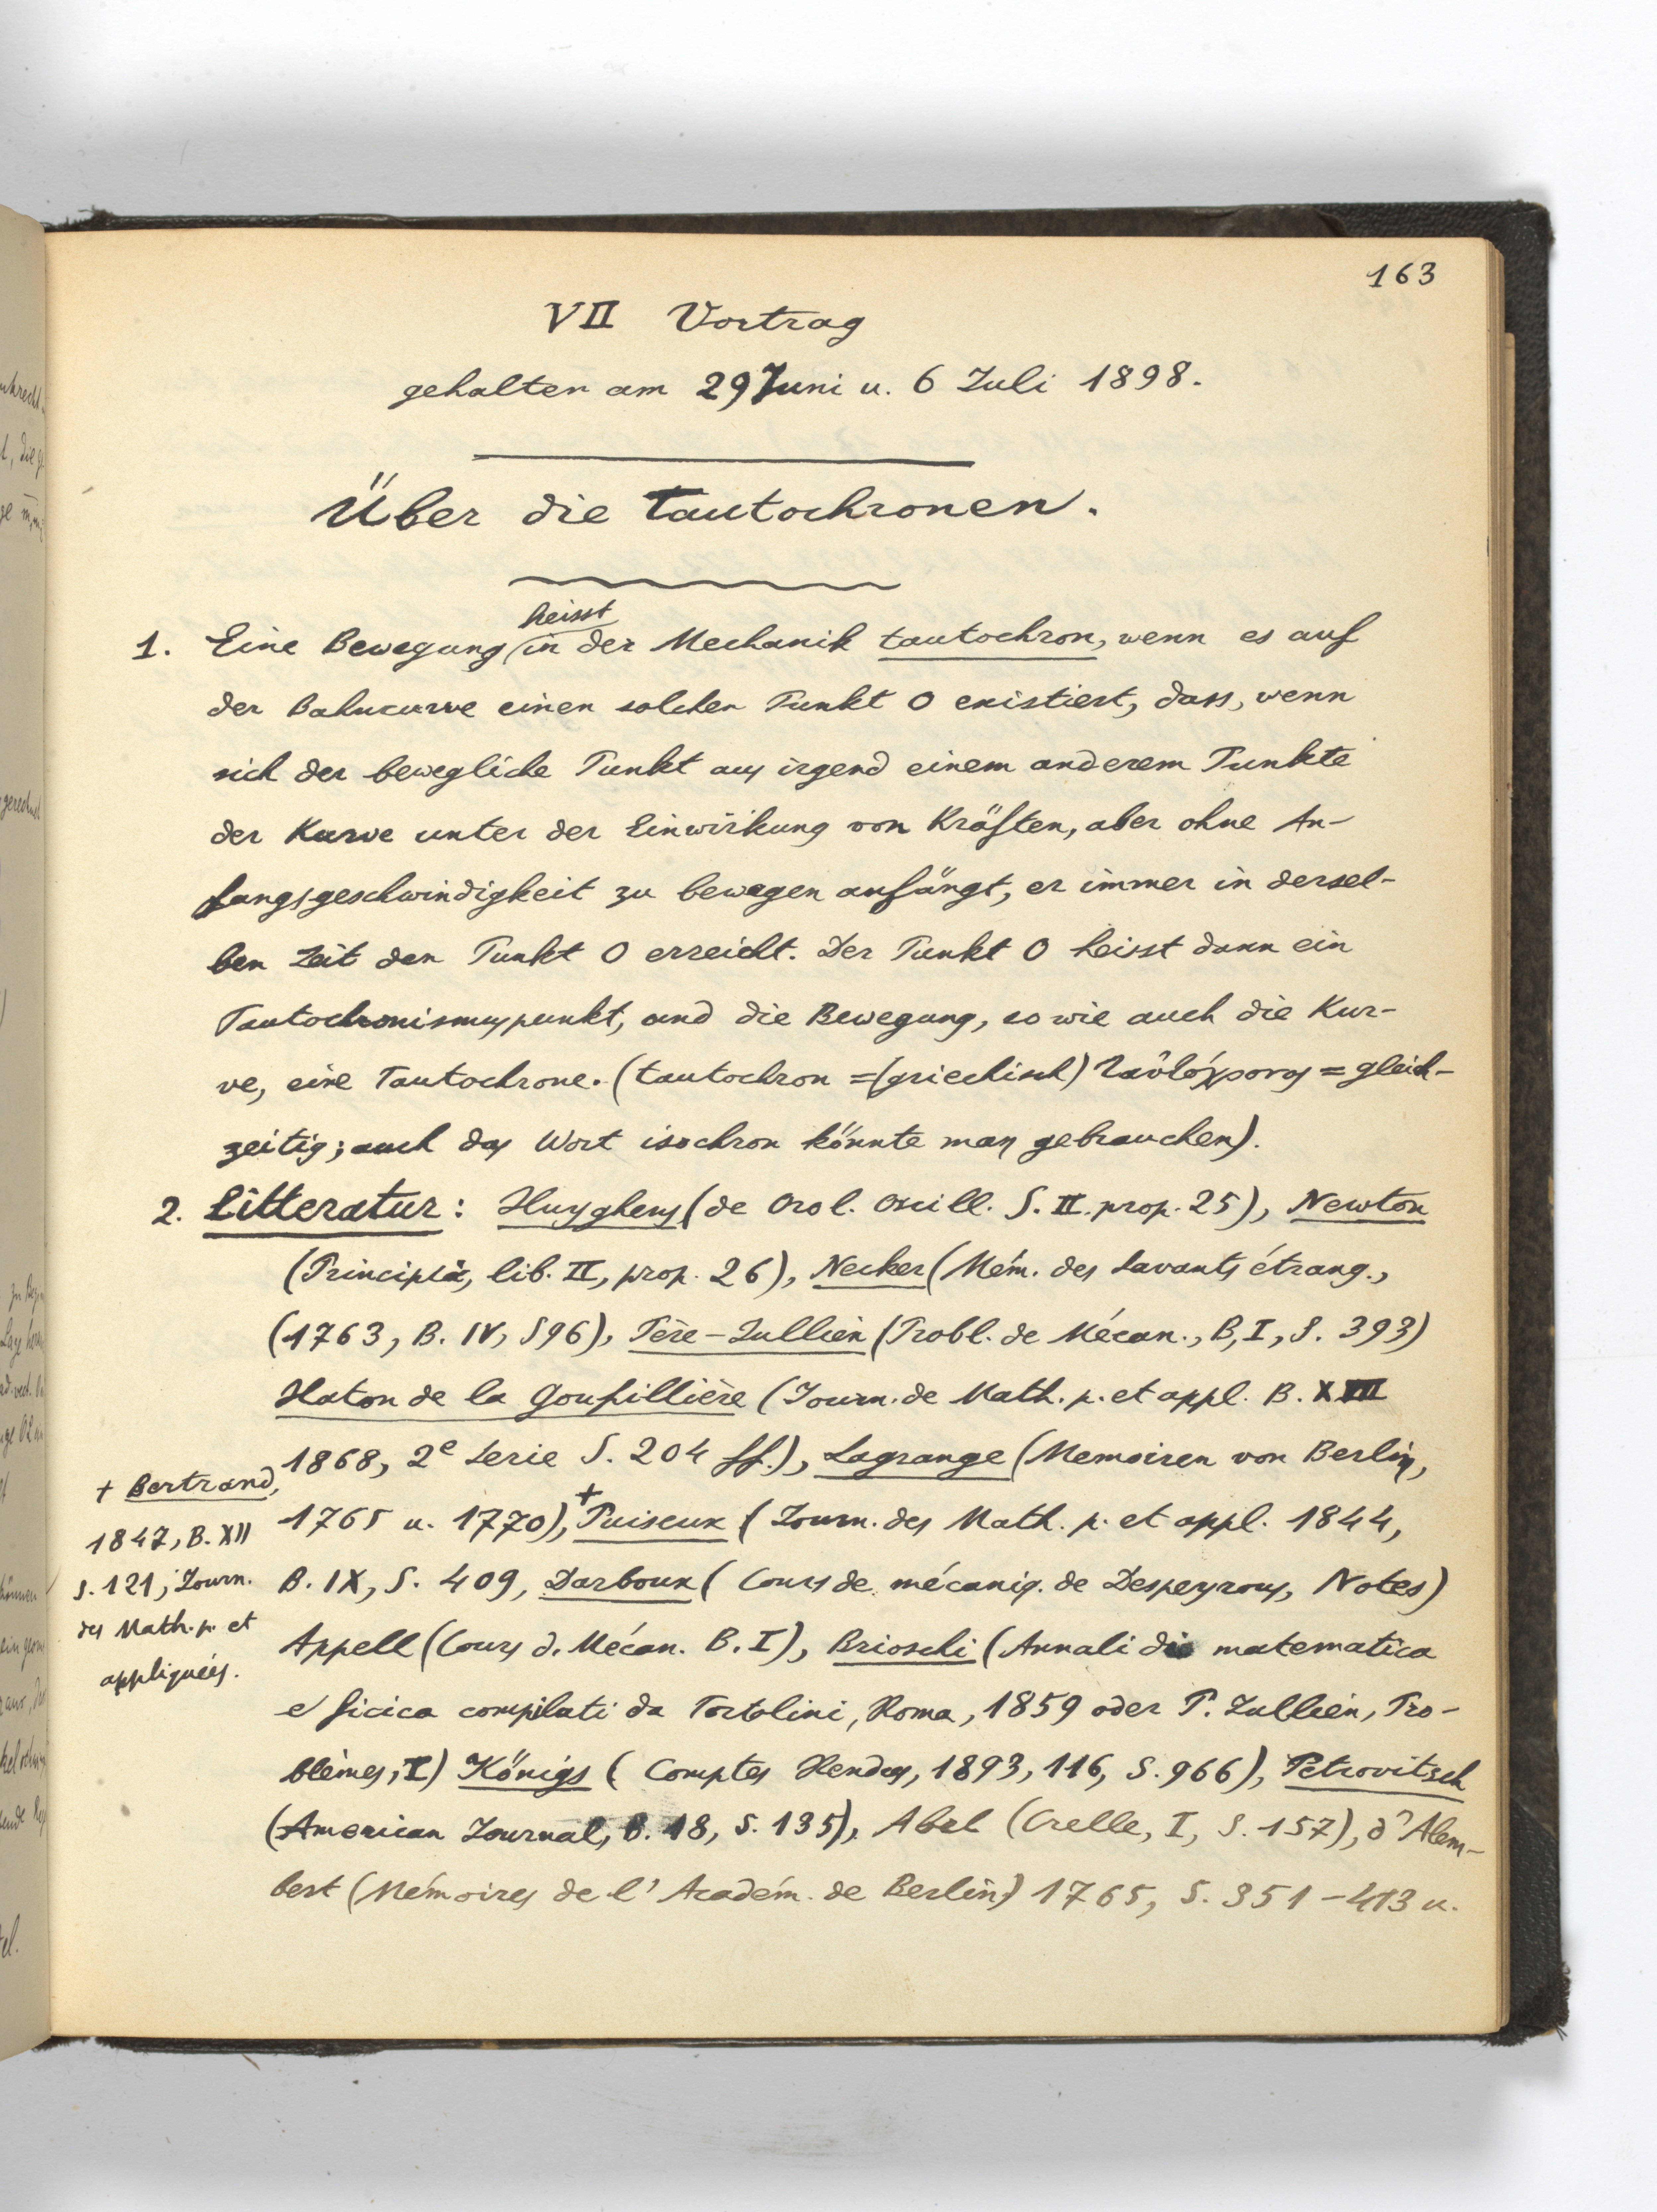 163
VII Vortrag
gehalten am 29 Juni u. 6 Juli 1898.
Über die Tautochronen.
heisst
1. Eine Bewegung in der Mechanik tautochron, wenn es auf
der Bahncurve einen solchen Punkt O existiert, dass, wenn
sich der bewegliche Punkt aus irgend einem anderem Punkte
der Kurve unter der Einwirkung von Kräften, aber ohne An-
fangsgeschwindigkeit zu bewegen anfängt, er immer in dersel-
ben Zeit den Punkt O erreicht. Der Punkt O heisst dann ein
Tautochronismuspunkt, und die Bewegung, so wie auch die Kur-
ve, eine Tautochrone. (tautochron = (griechisch) ταὐτόχρονος = gleich-
zeitig; auch das Wort isochron könnte man gebrauchen).
2. Litteratur: Huyghens (de Orol. Oscill. S. II. prop. 25), Newton
(Principia, lib. II, prop. 26), Necker (Mém. des Savants étrang.,
(1763, B. IV, S96), Père-Jullien (Probl. de Mécan., B, I, S. 393)
Haton de la Goupillière (Journ. de Math. p. et appl. B. XIII
1868, 2e Serie S. 204 ff.), Lagrange (Memoiren von Berlin,
1765 u. 1770), + Puiseux (Journ. des Math. p. et appl. 1844,
B. IX, S. 409, Darboux (Cours de mécaniq. de Despeyrous, Notes)
Appell (Cours d. Mécan. B. I), Brioschi (Annali di matematica
e ficica compilati da Tortolini, Roma, 1859 oder P. Jullien, Pro-
blèmes, I) Königs (Comptes Rendus, 1893, 116, S. 966), Petrovitsch
(American Journal, B. 18, S. 135), Abel (Crelle, I, S. 157), d'Alem-
bert (Mémoires de l'Académ. de Berlin) 1765, S. 351-413 u.
+ Bertrand,
1847, B. XII
S. 121, Journ.
des Math. p. et
appliquées.